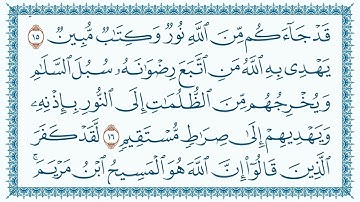 قَدْ جَآءَكُم مِّنَ ٱللَّهِ نُورٌ وَكِتَٰبٌ مُّبِينٌ ١٥
يَهْدِى بِهِ ٱللَّهُ مَنِ ٱتَّبَعَ رِضْوَٰنَهُۥ سُبُلَ ٱلسَّلَٰمِ
وَيُخْرِجُهُم مِّنَ ٱلظُّلُمَٰتِ إِلَى ٱلنُّورِ بِإِذْنِهِۦ
وَيَهْدِيهِمْ إِلَىٰ صِرَٰطٍ مُّسْتَقِيمٍ ١٦ لَّقَدْ كَفَرَ
ٱلَّذِينَ قَالُوٓا۟ إِنَّ ٱللَّهَ هُوَ ٱلْمَسِيحُ ٱبْنُ مَرْيَمَ ۚ